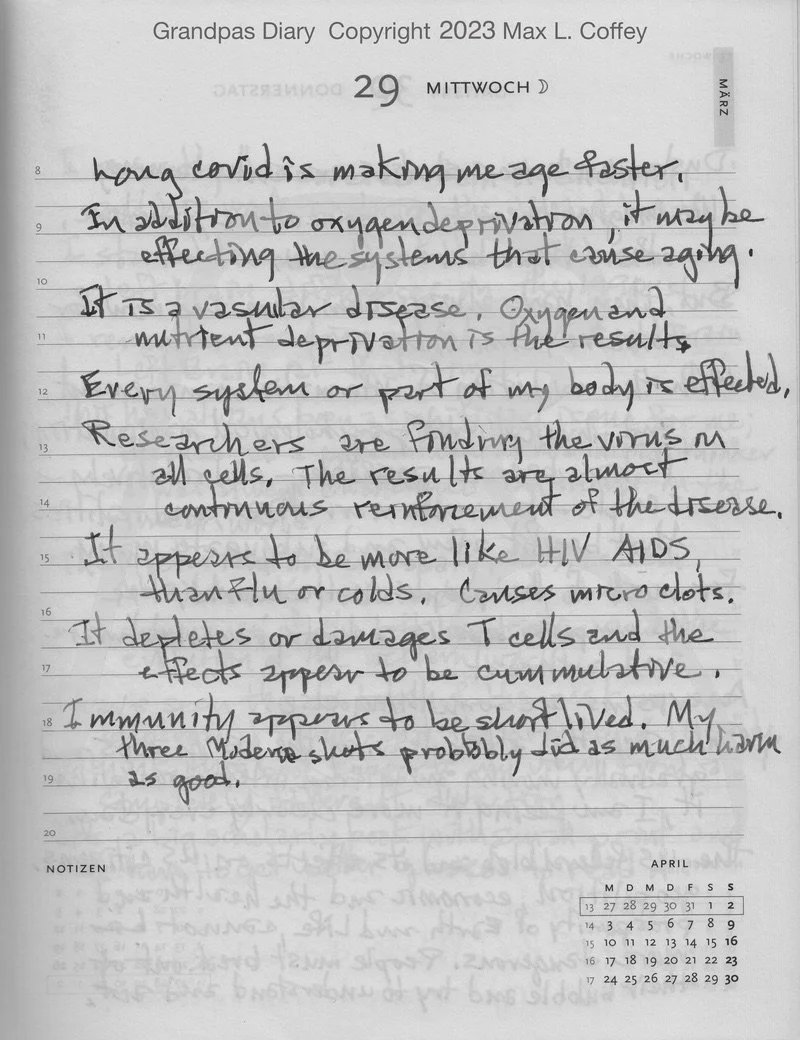 Grandpas Diary Copyright 2023 Max L. Coffey
29 MITTWOCH
MÄRZ
8 Long covid is making me age faster.
9 In addition to oxygen deprivation, it may be
effecting the systems that cause aging.
10
It is a vasular disease. Oxygen and
11 nutrient deprivation is the results.
12 Every system or part of my body is effected.
13 Researchers are finding the virus in
all cells. The results are almost
14 continuous reinforcement of the disease.
15 It appears to be more like HIV AIDS,
than flu or colds. Causes micro clots.
16
It depletes or damages T cells and the
17 effects appear to be cummulative.
18 Immunity appears to be short lived. My
three Moderna shots probobly did as much harm
19 as good.
20
NOTIZEN
APRIL
M D M D F S S
13 27 28 29 30 31 1 2
14 3 4 5 6 7 8 9
15 10 11 12 13 14 15 16
16 17 18 19 20 21 22 23
17 24 25 26 27 28 29 30